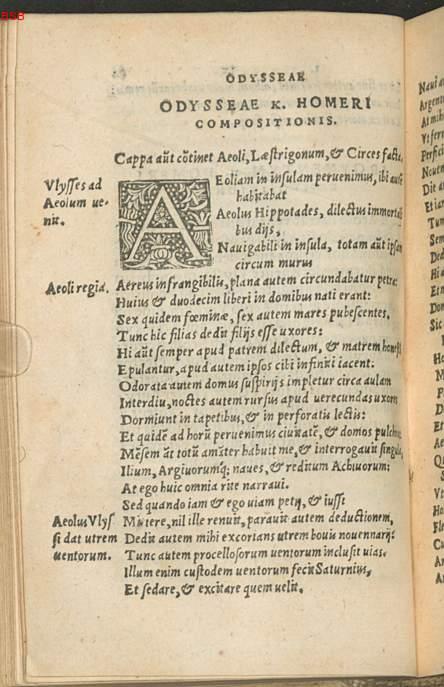 858
ODYSSEAE
ODYSSEAE K. HOMERI
COMPOSITIONIS.
Cappa aūt cōtinet Aeoli, Læstrigonum, & Circes facta.
Vlysses ad
Aeolum ue-
nit.
AEoliam in insulam peruenimus, ibi autē
habitabat
Aeolus Hippotades, dilectus immortali
bus dijs,
Nauigabili in insula, totam aūt ipsam
circum murus
Aeoli regia.
Aëreus infrangibilis, plana autem circundabatur petra:
Huius & duodecim liberi in domibus nati erant:
Sex quidem fœminæ, sex autem mares pubescentes.
Tunc hic filias dedit filijs esse uxores:
Hi aūt semper apud patrem dilectum, & matrem
Epulantur, apud autem ipsos cibi infiniti iacent:
Odorata autem domus suspirijs impletur circa aulam
Interdiu, noctes autem rursus apud uerecundas uxores
Dormiunt in tapetibus, & in perforatis lectis:
Et quidē ad horū peruenimus ciuitatē, & domos pulchras
Mēsem āt totū amāter habuit me, & interrogauit singula,
Ilium, Argiuorumq; naues, & reditum Achiuorum:
At ego huic omnia rite narraui.
Sed quando iam & ego uiam petij, & iussi
Aeolus Vlys
si dat utrem
uentorum.
Mittere, nil ille renuit, parauit autem deductionem,
Dedit autem mihi excorians utrem bouis nouennarij:
Tunc autem procellosorum uentorum inclusit uias.
Illum enim custodem uentorum fecit Saturnius,
Et sedare, & excitare quem uelit.